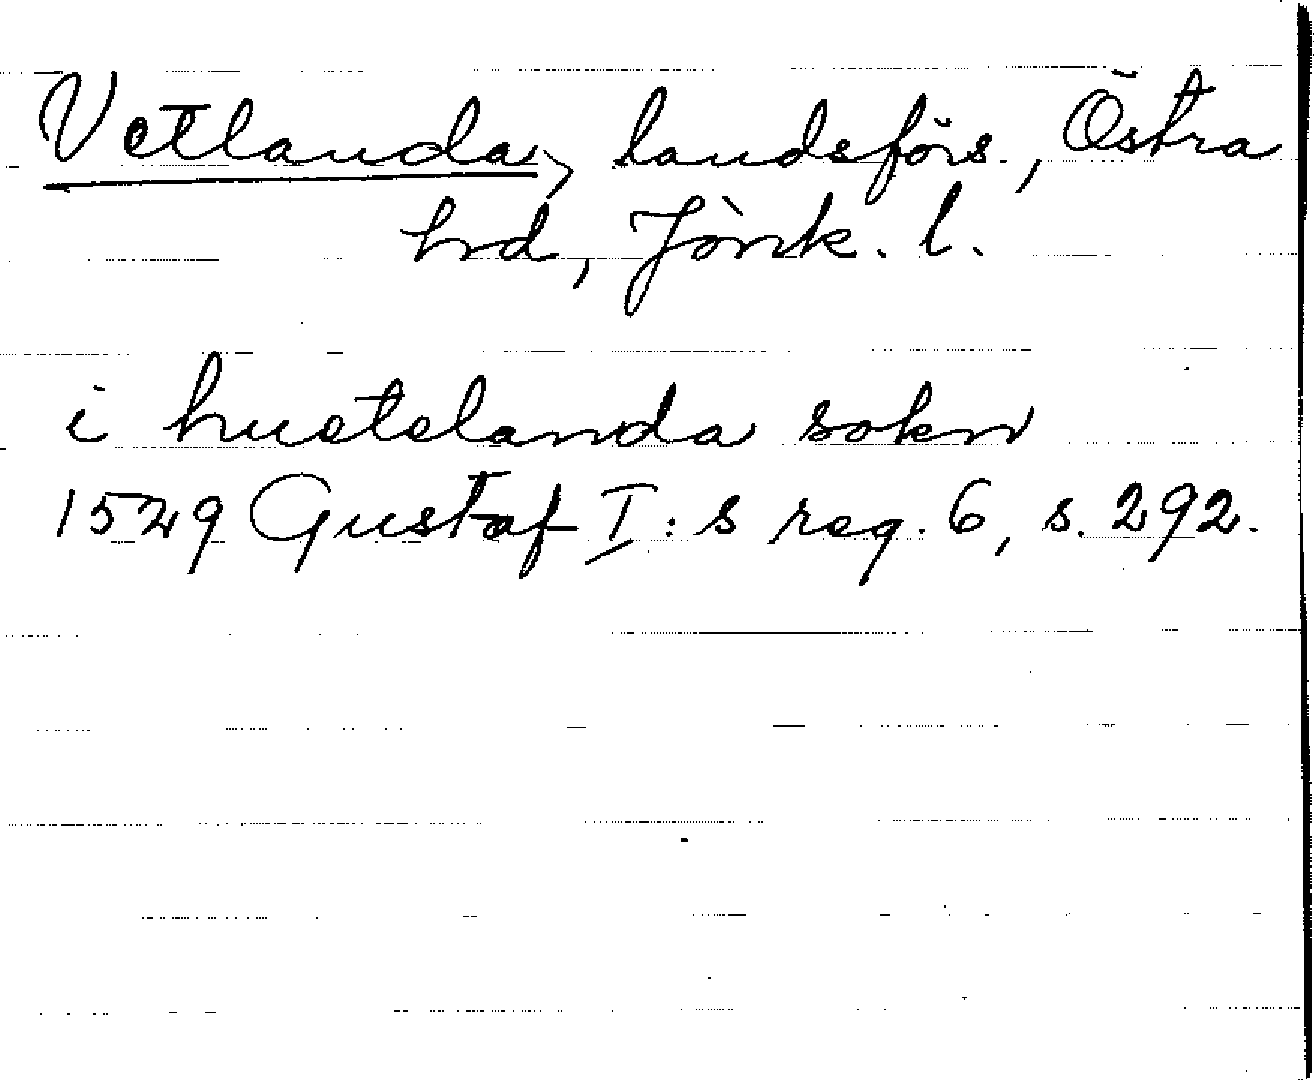 Vetlanda, landsförs., Östra
hrd, Jönk. l.
i huetelanda sokn
1529 Gustaf I:s reg. 6, s. 292.